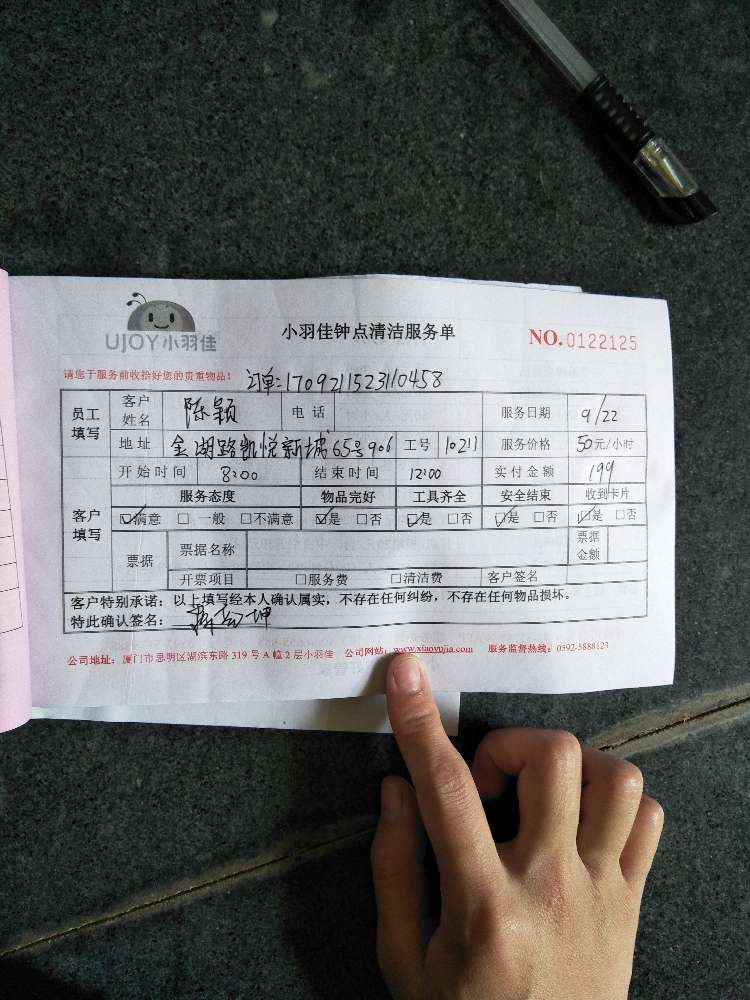 UJOY小羽佳 小羽佳钟点清洁服务单 NO.0122125
请您于服务前收拾好您的贵重物品! 订单:1709211523110458
员工填写 客户姓名 陈颖 电话 服务日期 9/22
地址 金湖路凯悦新城65号906 工号 10211 服务价格 50元/小时
开始时间 8:00 结束时间 12:00 实付金额 199
客户填写 服务态度 物品完好 工具齐全 安全结束 收到卡片
☑满意 □一般 □不满意 ☑是 □否 ☑是 □否 ☑是 □否 ☑是 □否
票据 票据名称 票据金额
开票项目 □服务费 □清洁费 客户签名
客户特别承诺:以上填写经本人确认属实,不存在任何纠纷,不存在任何物品损坏。
特此确认签名:
公司地址:厦门市思明区湖滨东路319号A幢2层小羽佳 公司网站:www.xiaoyujia.com 服务监督热线:0592-5888123